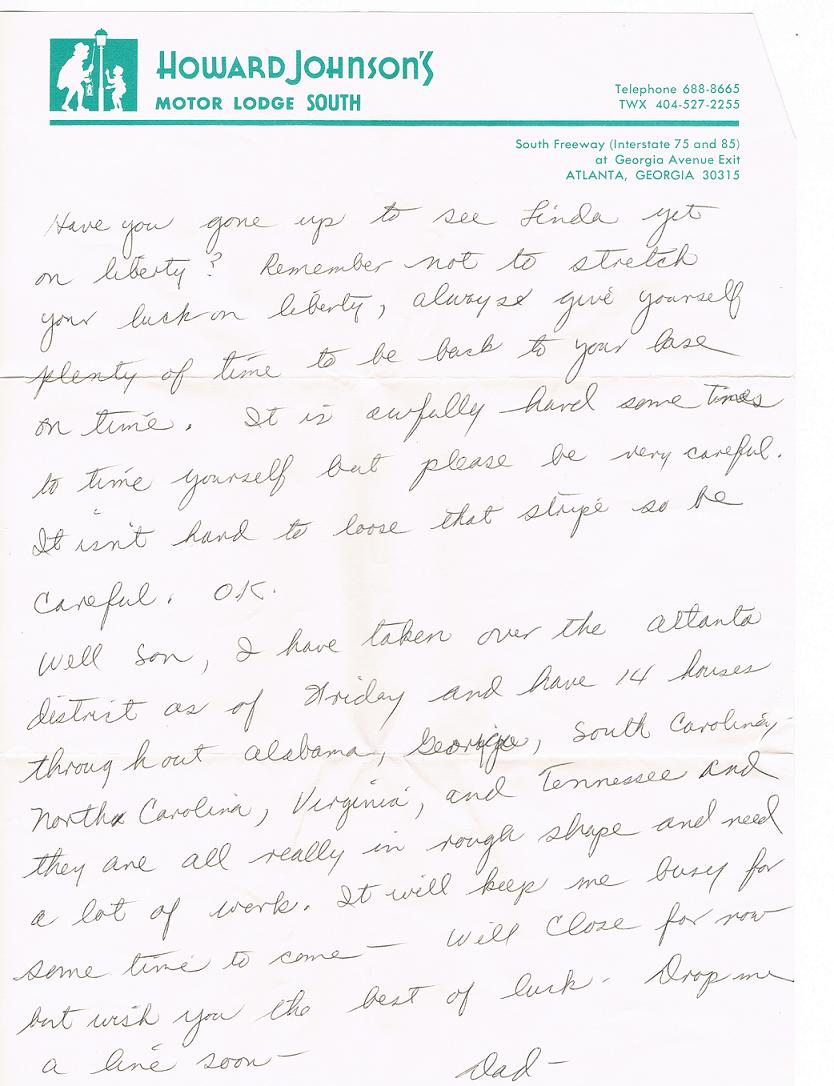 HOWARD JOHNSON'S
MOTOR LODGE SOUTH
Telephone 688-8665
TWX 404-527-2255
South Freeway (Interstate 75 and 85)
at Georgia Avenue Exit
ATLANTA, GEORGIA 30315
Have you gone up to see Linda yet
on liberty? Remember not to stretch
your luck on liberty, always give yourself
plenty of time to be back to your base
on time. It is awfully hard some times
to time yourself but please be very careful.
It isn't hard to loose that stripe so be
careful. OK.
Well Son, I have taken over the atlanta
district as of Friday and have 14 houses
through out alabama, Georgia, South Carolina,
North Carolina, Virginia, and Tennessee and
they are all really in rough shape and need
a lot of work. It will keep me busy for
some time to come — Will close for now
but wish you the best of luck. Drop me
a line soon —
Dad —